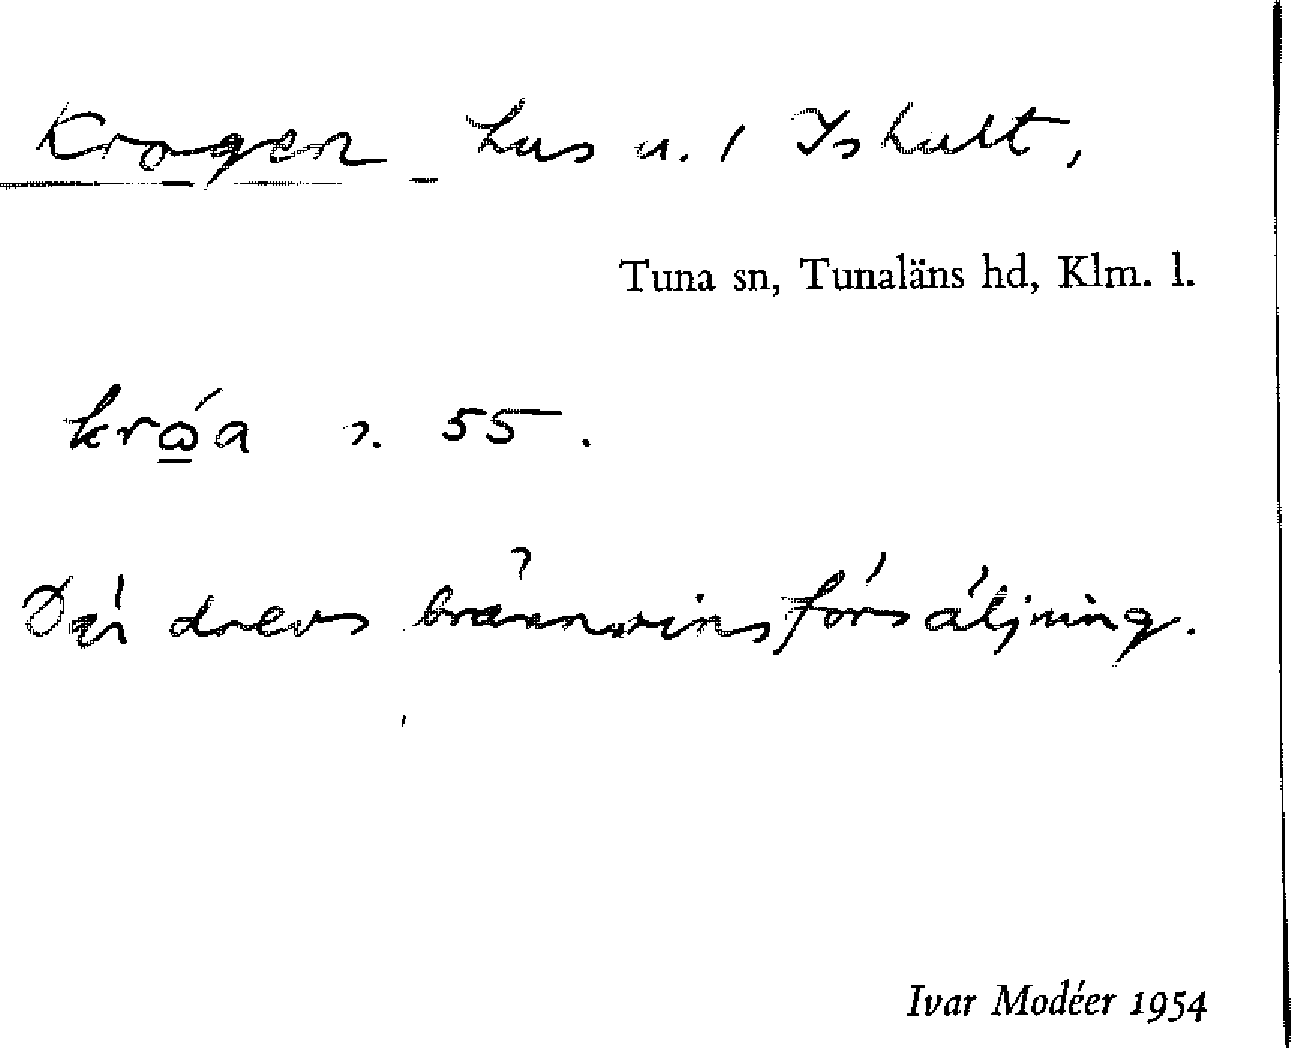 Krogen hus u. / Ishult,
Tuna sn, Tunaläns hd, Klm. l.
55.
Där drevs brännvinsförsäljning.
Ivar Modéer 1954